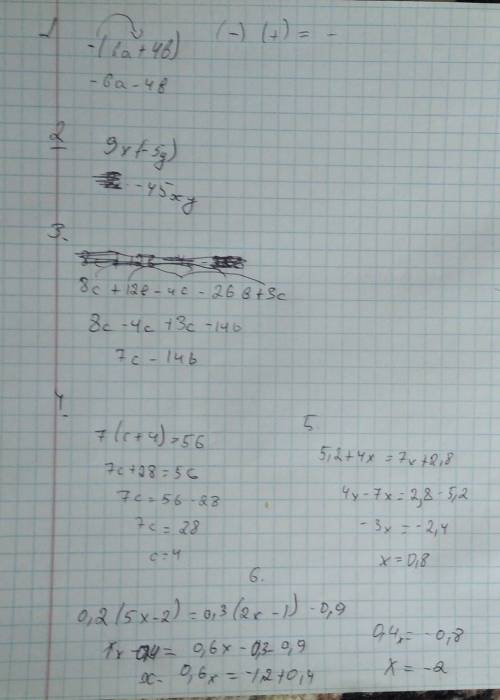 1
-(6a+4b) (-) (+) = -
-6a-4b
2
9x(-5y)
-45xy
3.
8c+12b-4c-26b+3c
8c-4c+3c-14b
7c-14b
4.
7(c+4)=56
7c+28=56
7c=56-28
7c=28
c=4
5.
5,2+4x=7x+2,8
4x-7x=2,8-5,2
-3x=-2,4
x=0,8
6.
0,2(5x-2)=0,3(2x-1)-0,9
1x-0,4=0,6x-0,3-0,9
x-0,6x=-1,2+0,4
0,4x=-0,8
x=-2